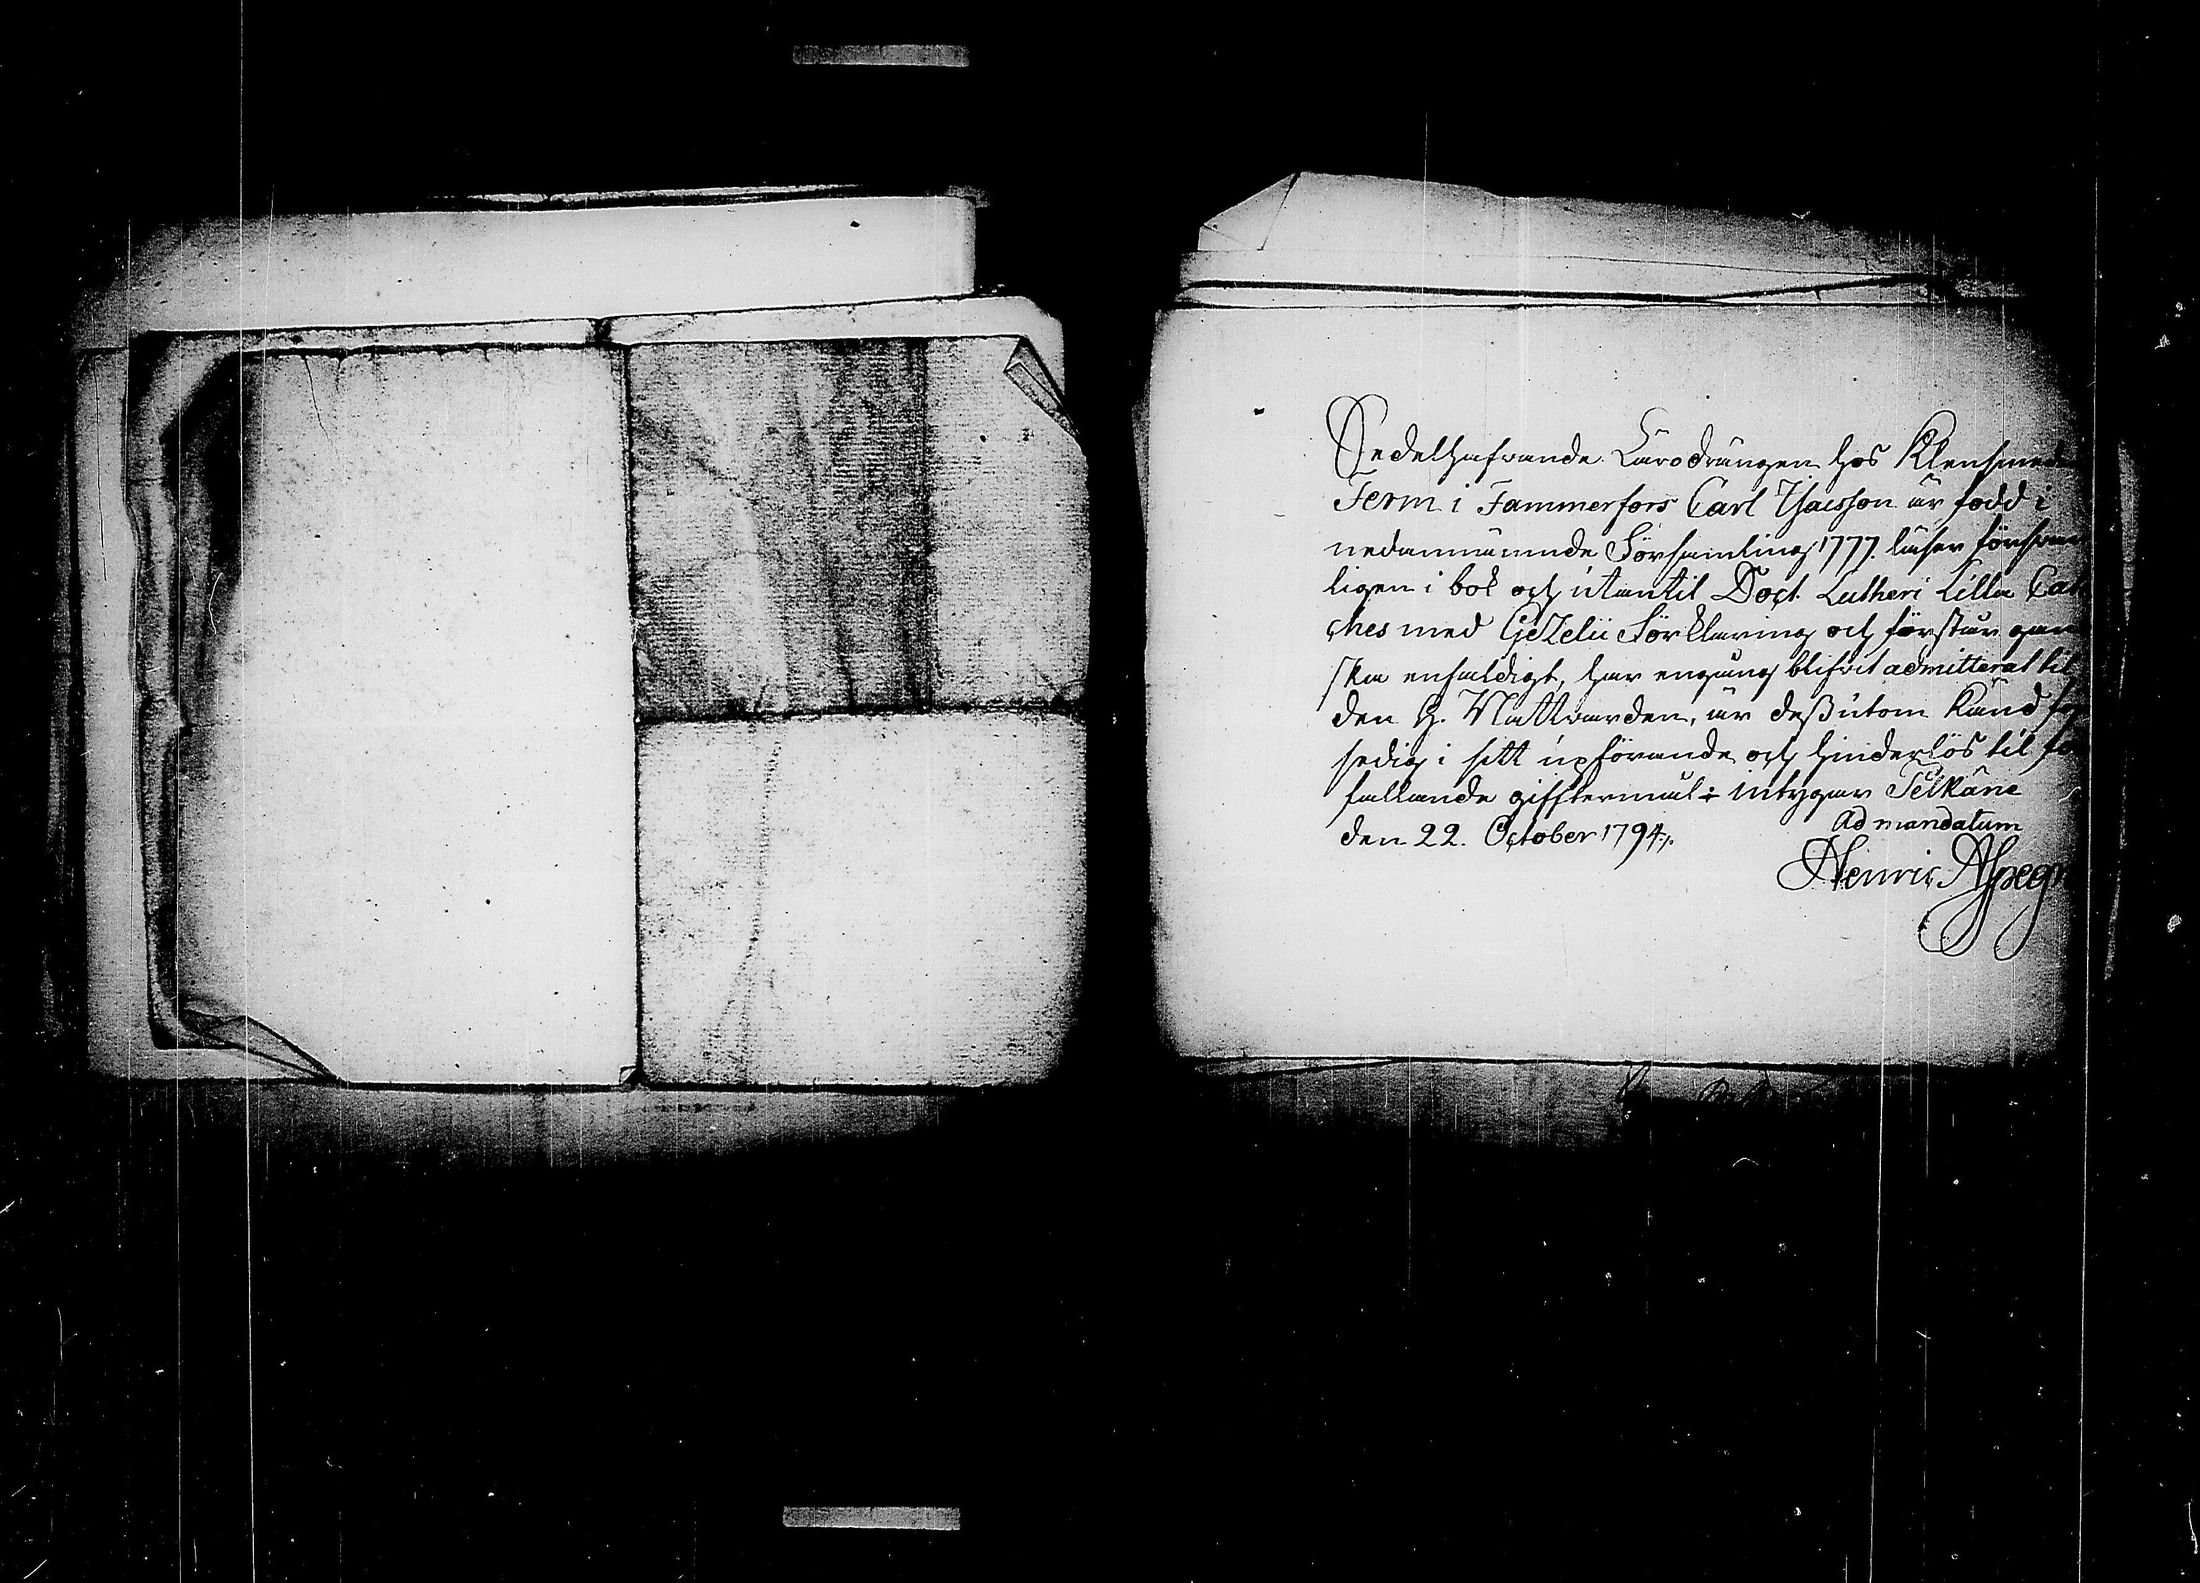 Sedelhafvande Lärodrängen hos Klensmeden
Ferm i Tammerfors Carl Isacsson är född i
nedannämnde Församling 1777. läser försvar
ligen i bok och utantil Doct. Lutheri Lilla Cat
ches med Gezelii Förklaring och förstår gan
ska enfaldigt, har engång blifvit admitterat til
den H. Nattvarden, är desutom känd för
sedig i sitt upförande och hinderlös til fö
fallande gifftermål: intygarSelkäne
den 22. October 1794.
Ad mandatum
Henric Aspegr